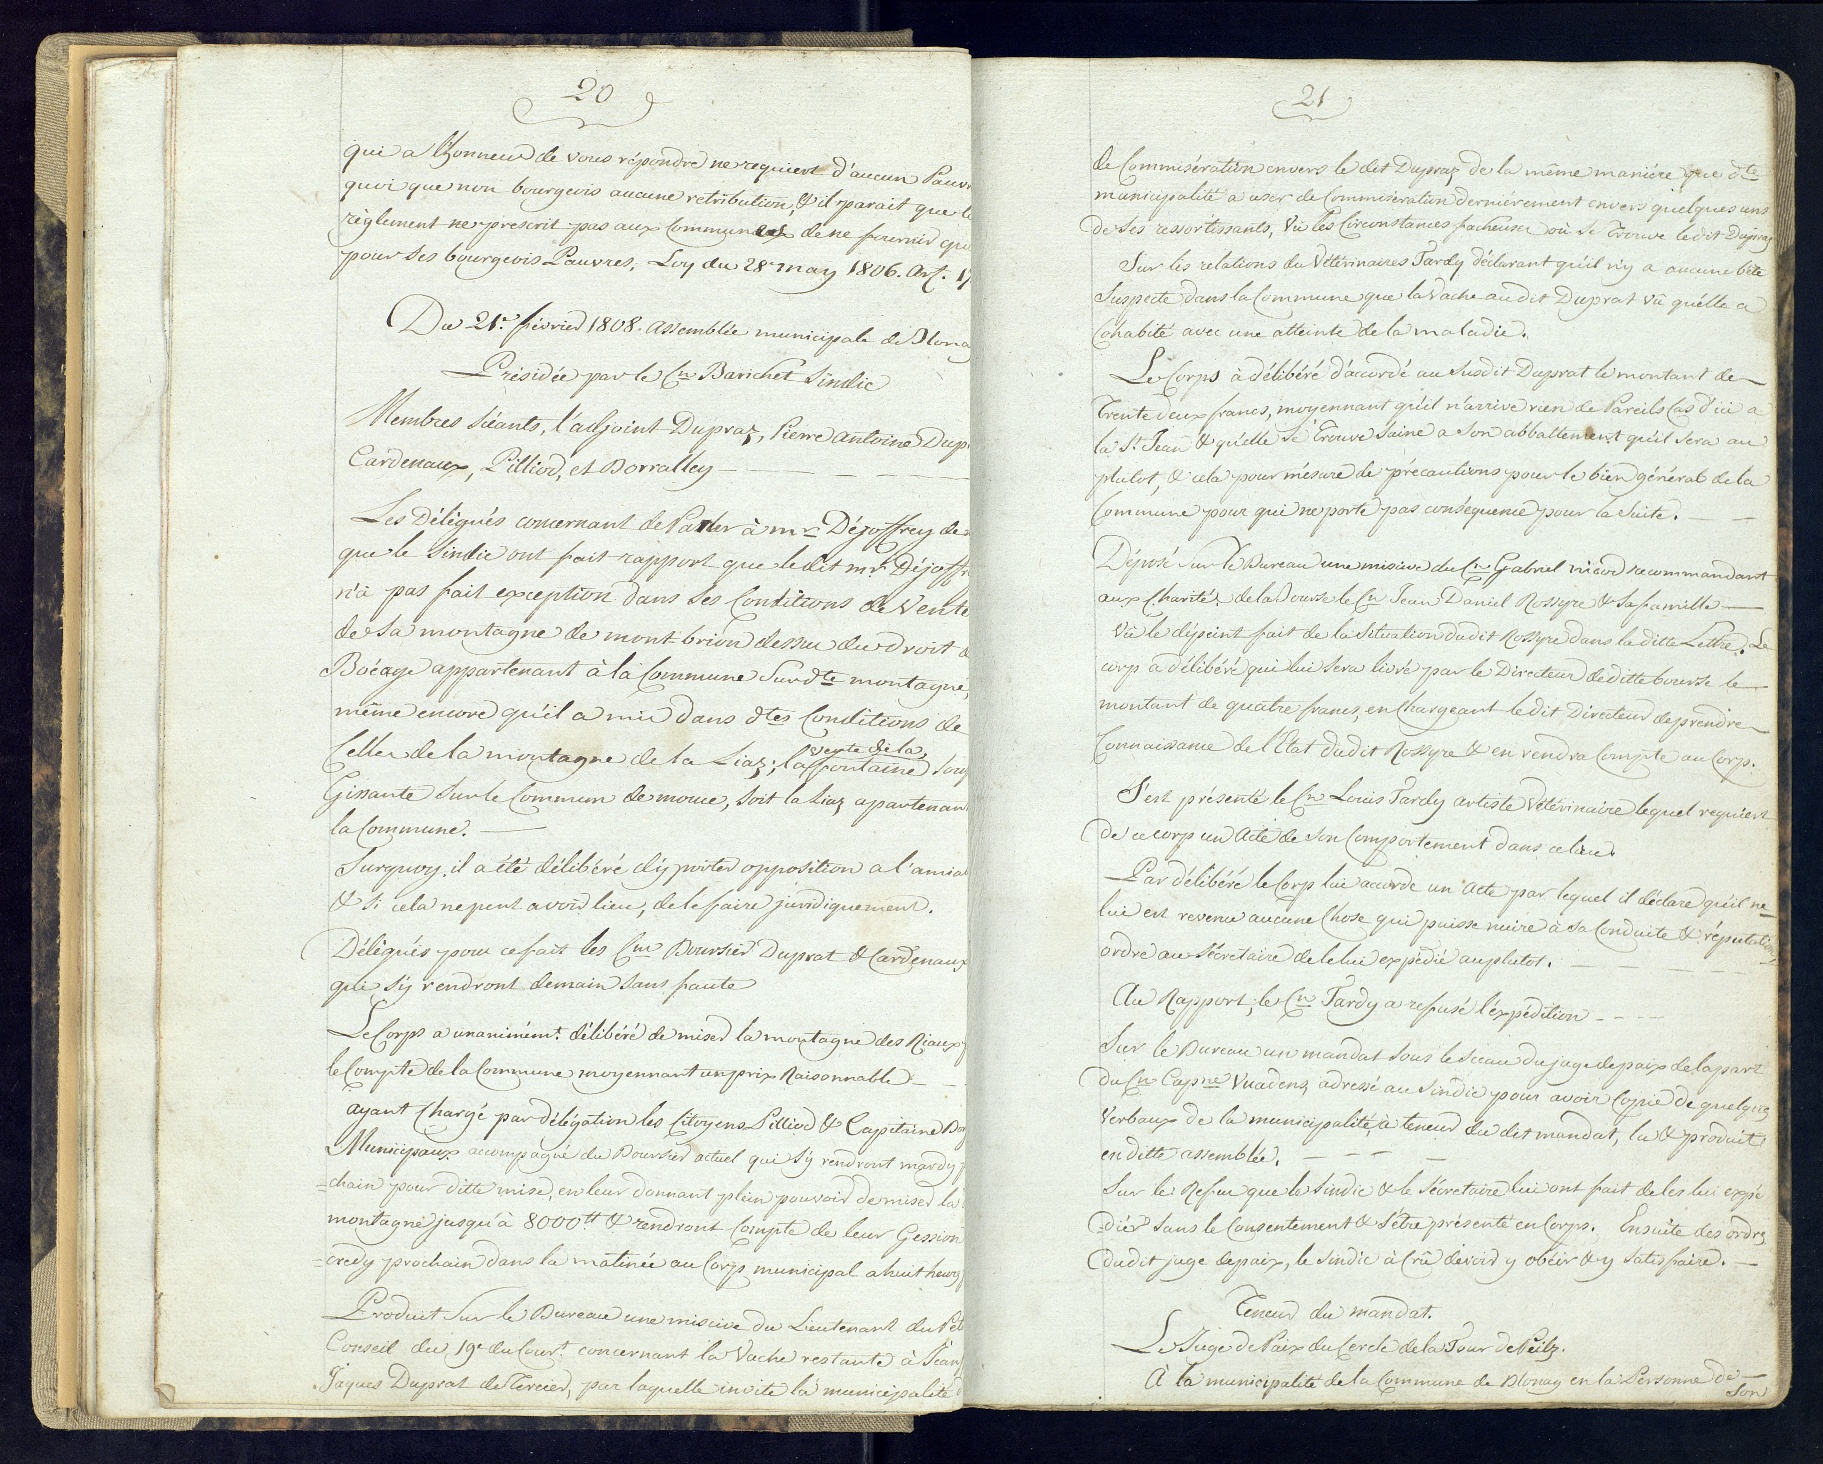 20
qui a l'honneur de vous répondre ne requiert d'aucun Pauvr
quoi que non bourgeois aucune retribution, & il parait que le
règlement ne prescrit pas aux Communes de ne fournir que
pour ses bourgeois Pauvres, Loy du 28e may 1806. Art. 17
Du 21e. février 1808. assemblée municipale de Blona
Présidée par le Cn Barichet Sindic
Membres Séants, l'adjoint Dupraz, Pierre antoine Dup
Cardenaux, Pilliod, et Borralley
Les Délégués concernant de Parler à mr. Déjoffrey de
que le Sindic ont fait rapport que ledit mr. Déjoffr
n'à pas fait exception dans ses Conditions de Vente
de Sa montagne de mont-brion dessu du Droit d
Bocage appartenant à la Commune Sur dte montagne,
même encore qu'il a mis dans dtes Conditions de
Celle de la montagne de la Liaz; la vente de la fontaine Sou
Gissante sur le Commun de mouce, Soit la Liaz apartenant
la Commune.
Surquoy, il a été délibéré d'y porter opposition a l'amia
& Si cela ne peut avoir lieu, de le faire juridiquement.
Délégués pour ce fait les Cns Boursier Duprat & Cardenaux
qui s'y rendront demain sans faute
Le Corps a unaniment. délibéré de miser la montagne des Riaux p
le Compte de la Commune moyennant un prix Raisonnable
ayant Chargé par délégation les Citoyens Pilliod & Capitaine Bo
Municipaux acompagné du Boursier actuel qui s'y rendront mardy p
=chain pour ditte mise, en leur donnant plein pouvoir de miser la
montagne jusqu'à 8000 tt & rendront Compte de leur Gession
=credy prochain dans la matinée au Corps municipal a huit heures
Produit Sur le Bureau une missive du Lieutenant du Pet
Conseil du 19e du Court. concernant la Vache restante à Jean
Jaques Duprat de Tercier, par laquelle invite la municipalité d
21
de Commisération envers le dit Dupraz de la même manière que dte
municipalité a user de Commisération dernièrement envers quelques uns
de Ses ressortissants, Vû les Circonstances facheuses où se trouve ledit Dupraz
Sur les relations du Vétérinaires Tardy déclarant qu'il n'y a aucune bête
Suspecte dans la Commune que la Vache au dit Duprat vû qu'elle a
Cohabité avec une atteinte de la maladie.
Le Corps à délibéré d'accordé au Susdit Duprat le montant de
Trente deux francs, moyennant qu'il n'arrive rien de Pareils Cas d'ici a
la St. Jean & qu'elle Se Trouve Saine a Son abbattement qu'il Sera au
plutot, & cela pour mésure de précautions pour le bien général de la
Commune pour qui ne porte pas conséquence pour la Suite.
Déposé Sur le Bureau une misive du Cn Gabriel nicod recommandant
aux Charités de la Bourse le Cn Jean Daniel Rossyre & Sa famille
Vû le dépeint fait de la Situation dudit Rossyre dans la ditte Lettre. Le
corp a délibéré qui lui Sera livré par le Directeur de ditte bourse le
montant de quatre francs, en Chargeant le dit Directeur de prendre
Connaissance de l'Etat dudit Rossyre & en rendra Compte au Corp.
S'est présenté le Cn Louis Tardy artiste Vétérinaire lequel requiert
de ce corp un Acte de Son Comportement dans ce lieu.
Par délibéré le Corp lui accorde un acte par lequel il déclare qu'il ne
lui est revenu aucune Chose qui puisse nuire à Sa Conduite & réputation
ordre au Sécretaire de le lui expédié au plutot.
Au Rapport; le Cn Tardy a refusé l'éxpédition
Sur le Bureau un mandat Sous le Sceau du juge de paix de la part
du Cn Capne Vuadens, adressé au Sindic pour avoir Copie de quelques
Verbaux de la municipalité, à teneur du dit mandat, lu & produit
en ditte assemblée.
Sur le Refus que le Sindic & le Sécretaire lui ont fait de les lui expé
=dier Sans le Consentement & s'être présenté en Corps. Ensuite des ordres
dudit juge de paix, le Sindic à Crû devoir y obéir & y Satisfaire.
Teneur du mandat.
Le Juge de Paix du Cercle de la Tour de Peilz.
À la municipalité de la Commune de Blonay en la Personne de
Son